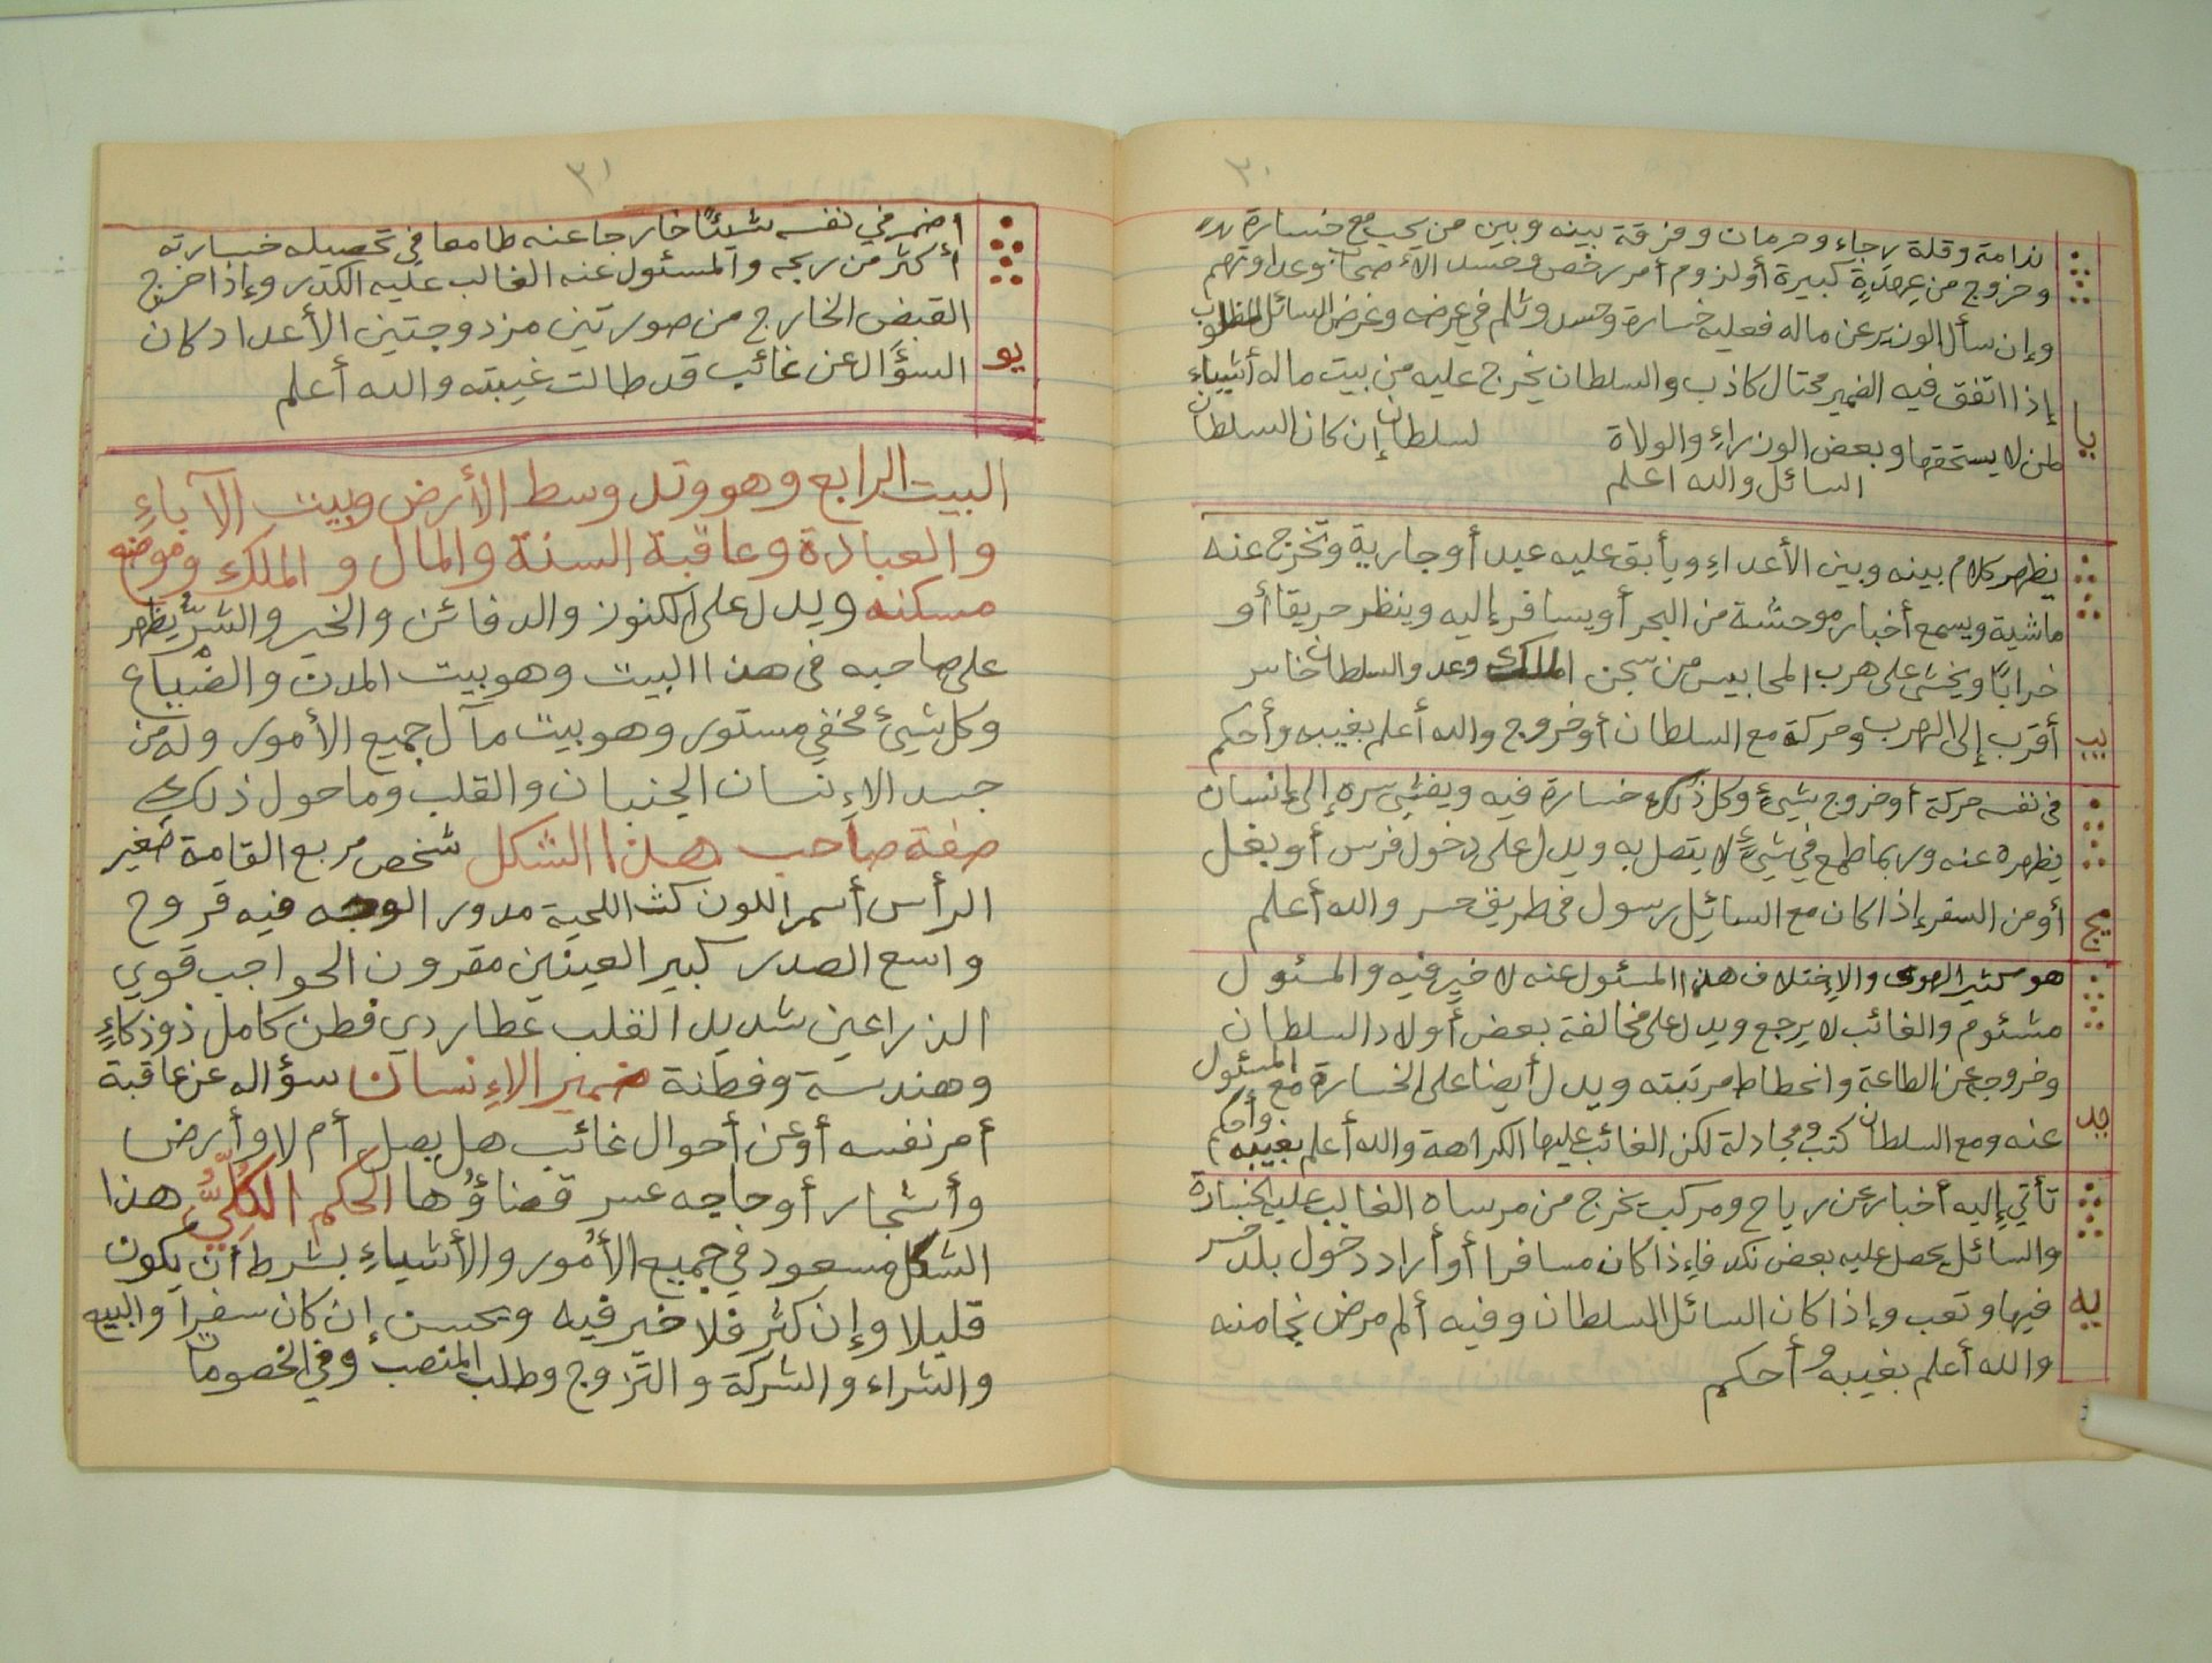 ٣٠
ندامة وقلة رجاء وحرمان وفرقة بينه وبين من يحب مع خسارة
وخروج من عهدةٍ كبيرة أو لزوم أمر رخص وحسد الأصحاب وعداوتهم
وإن سأل الوزير عن ماله فعليه خسارة وحسد وثلم في عرضه وغرض السائل المطلوب
إذا اتفق فيه الضمير محتال كاذب والسلطان يخرج عليه من بيت ماله أشياء
يا
لمن لا يستحقها وبعض الوزراءِ والولاة لسلطان إن كان السلطان
السائل والله اعلم
يظهر كلام بينه وبين الأعداءِ ويأبق عليه عبد أو جارية وتخرج عنه
ماشية ويسمع أخبار موحشة من البحر أو يسافر إليه وينظر حريقا أو
خرابًا ويخشى على هرب المحابيس من سجن الملك وعدو السلطان خاسر
يب
أقرب إلى الهرب وحركة مع السلطان أو خروج والله أعلم بغيبه وأحكم
فى نفسه حركة أو خروج شيئ وكل ذلك خسارة فيه ويفشي سره إلى إنسان
يظهره عنه وربما طمع في شيئ لا يتصل به ويدل على دخول فرس أو بغل
يج
أو من السفر إذا كان مع السائِل رسول فى طريق خسر والله أعلم
هو كثير الهوى والإختلاف هذا المسئول عنه لا خير فيه والمسئول
مشئوم والغائب لا يرجع ويدل على مخالفة بعض أولاد السلطان
وخروجه عن الطاعة وانحطاط مرتبته ويدل أيضا على الخسارة مع المسئول
يد
عنه ومع السلطان كتب ومجادلة لكن الغائب عليها الكراهة والله أعلم بغيبه وأحكم
تأتي إليه أخبار عن رياح ومركب يخرج من مرساه الغالب عليه الخسارة
والسائل يحصل عليه بعض نكد فإذا كان مسافرا أو أراد دخول بلد خسر
يه
فيها وتعب وإذا كان السائل السلطان وفيه ألم مرض نجا منه
والله أعلم بغيبه وأحكم
٣١
أضمر في نفسه شيئًا خارجا عنه طامعا في تحصيله خسارته
أكثر من ربحه والمسئول عنه الغالب عليه الكدر وإذا خرج
القبض الخارج من صورتين مزدوجتين الأعداد كان
يو
السؤال عن غائب قد طالت غيبته والله أعلم
البيت الرابع وهو وتد وسط الأرض وبيت الآباءِ
والعبادة وعاقبة السنة والمال والملك وموضع
مسكنه ويدل على الكنوز والدفائن والخير والشرّ يظهر
على صاحبه فى هذا البيت وهو بيت المدن والضياع
وكل شيئ مخفي مستور وهو بيت مآل جميع الأمور وله من
جسد الإنسان الجنبان والقلب وما حول ذلك
صفة صاحب هذا الشكل شخص مربع القامة صغير
الرأس أسمر اللون كث اللحية مدور الوجه فيه قروح
واسع الصدر كبير العينين مقرون الحواجب قوي
الذراعين شديد القلب عطاردي فطن كامل ذو ذكاءٍ
وهندسة وفطنة ضمير الإنسان سؤاله عن عاقبة
أمر نفسه أو عن أحوال غائب هل يصل أم لا وأرض
وأشجار أو حاجه عسر قضاؤُها الحكم الكُلِّيُّ هذا
الشكل مسعود في جميع الأمور والأشياءِ بشرط أن يكون
قليلا وإن كثر فلا خير فيه ويحسن إن كان سفيرا والبيع
والشراء والشركة والتزوج وطلب المنصب وفي الخصومات